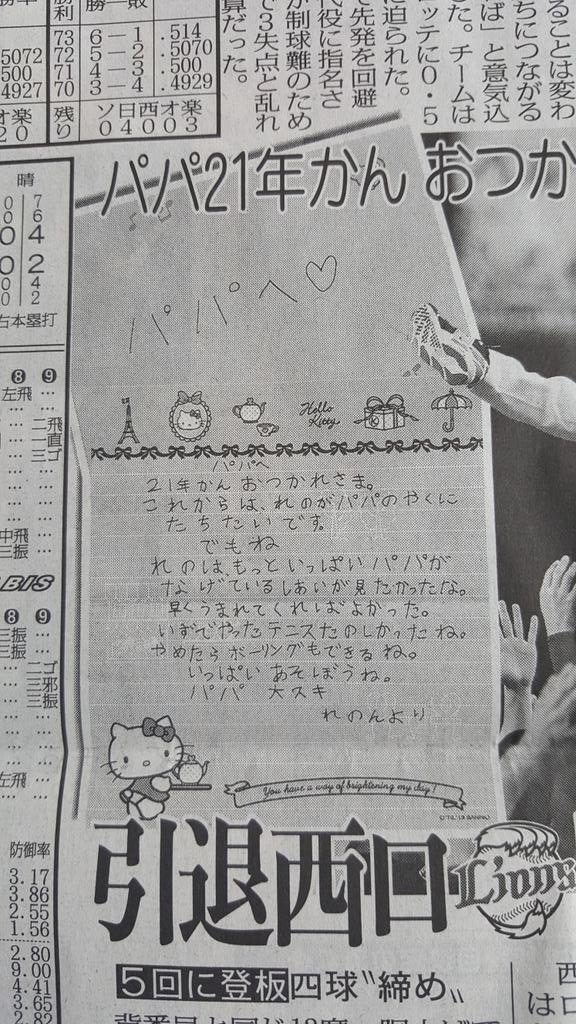 ることは変わ
ちにつながる
ば」と意気込
た。チームは
ッテに0・5
に迫られた。
で先発を回避
代役に指名さ
が制球難のため
で3失点と乱れ
算だった。
勝利 勝―敗
73 6－1 .514
5072 72 5－2 .5070
500 71 4－3 .500
4927 70 3－4 .4929
オ楽 残り ソ日西オ楽
20 04003
パパ21年かん おつか
パパへ♡
Hello Kitty
パパへ
21年かん おつかれさま。
これからは、れのがパパのやくに
たちたいです。
でもね
れのは、もっといっぱいパパが
なげているしあいが見たかったな。
早くうまれてくればよかった。
いずでやったテニスたのしかったね。
やめたらボーリングもできるね。
いっぱいあそぼうね。
パパ 大スキ
れのんより
You have a way of brightening my day!
引退西口
Lions
5回に登板四球〝締め〟
晴
右本塁打
❽ ❾
左飛 …
… 二飛
… 一直
… 三ゴ
中飛 …
三振 …
BIS
❽ ❾
三振 …
三振 …
… 二ゴ
… 三邪
… 三振
左飛 …
防御率
3.17
3.86
2.55
1.56
2.80
9.00
4.41
3.65
2.82
西
はロ